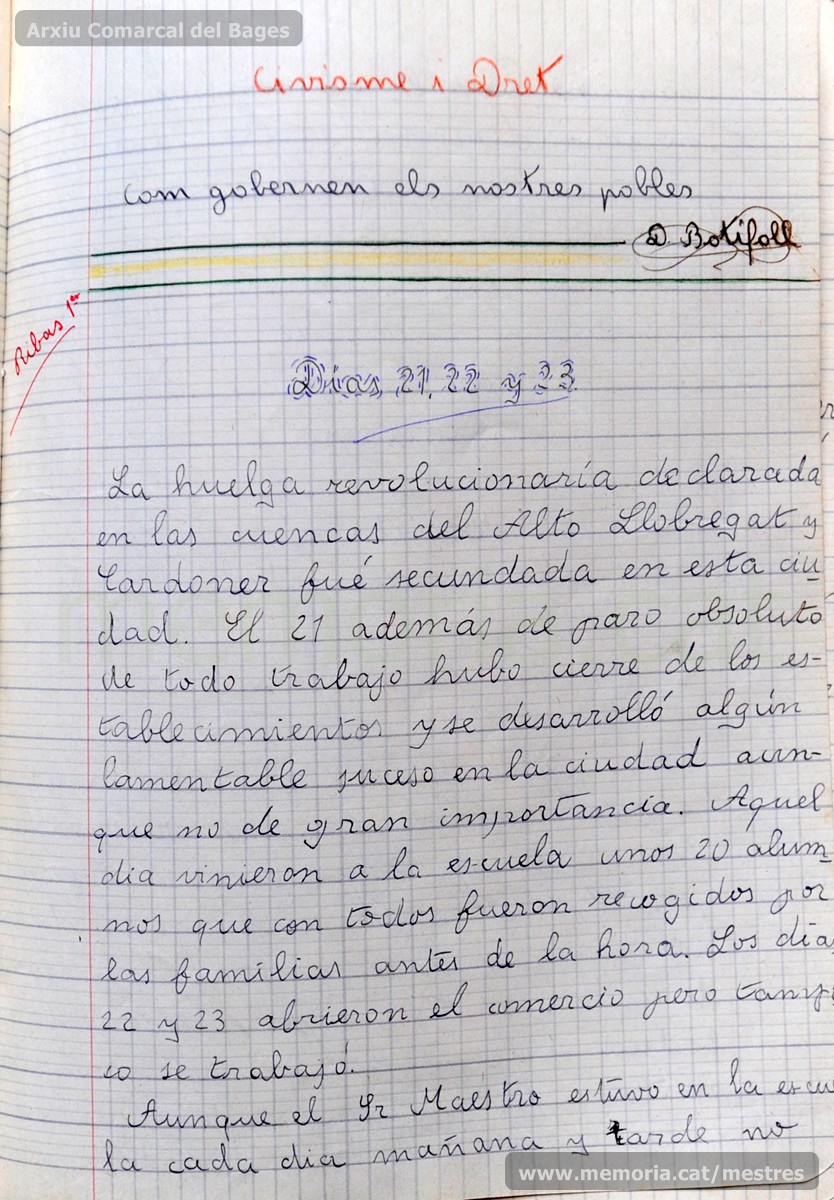 Arxiu Comarcal del Bages
Civisme i Dret
Com gobernen els nostres pobles
D. Botifoll
Ribas 1er
Dias 21, 22 y 23
La huelga revolucionaría declarada
en las cuencas del Alto Llobregat y
Cardoner fué secundada en esta ciu
dad. El 21 además de paro absoluto
de todo trabajo hubo cierre de los es-
tablecimientos y se desarrolló algún
lamentable suceso en la ciudad aun-
que no de gran importancia. Aquel
dia vinieron a la escuela unos 20 alum
nos que con todos fueron recogidos por
las familias antes de la hora. Los dia
22 y 23 abrieron el comercio pero tamp
co se trabajó.
Aunque el Sr Maestro estuvo en la escu
la cada dia mañana y tarde no
www.memoria.cat/mestres